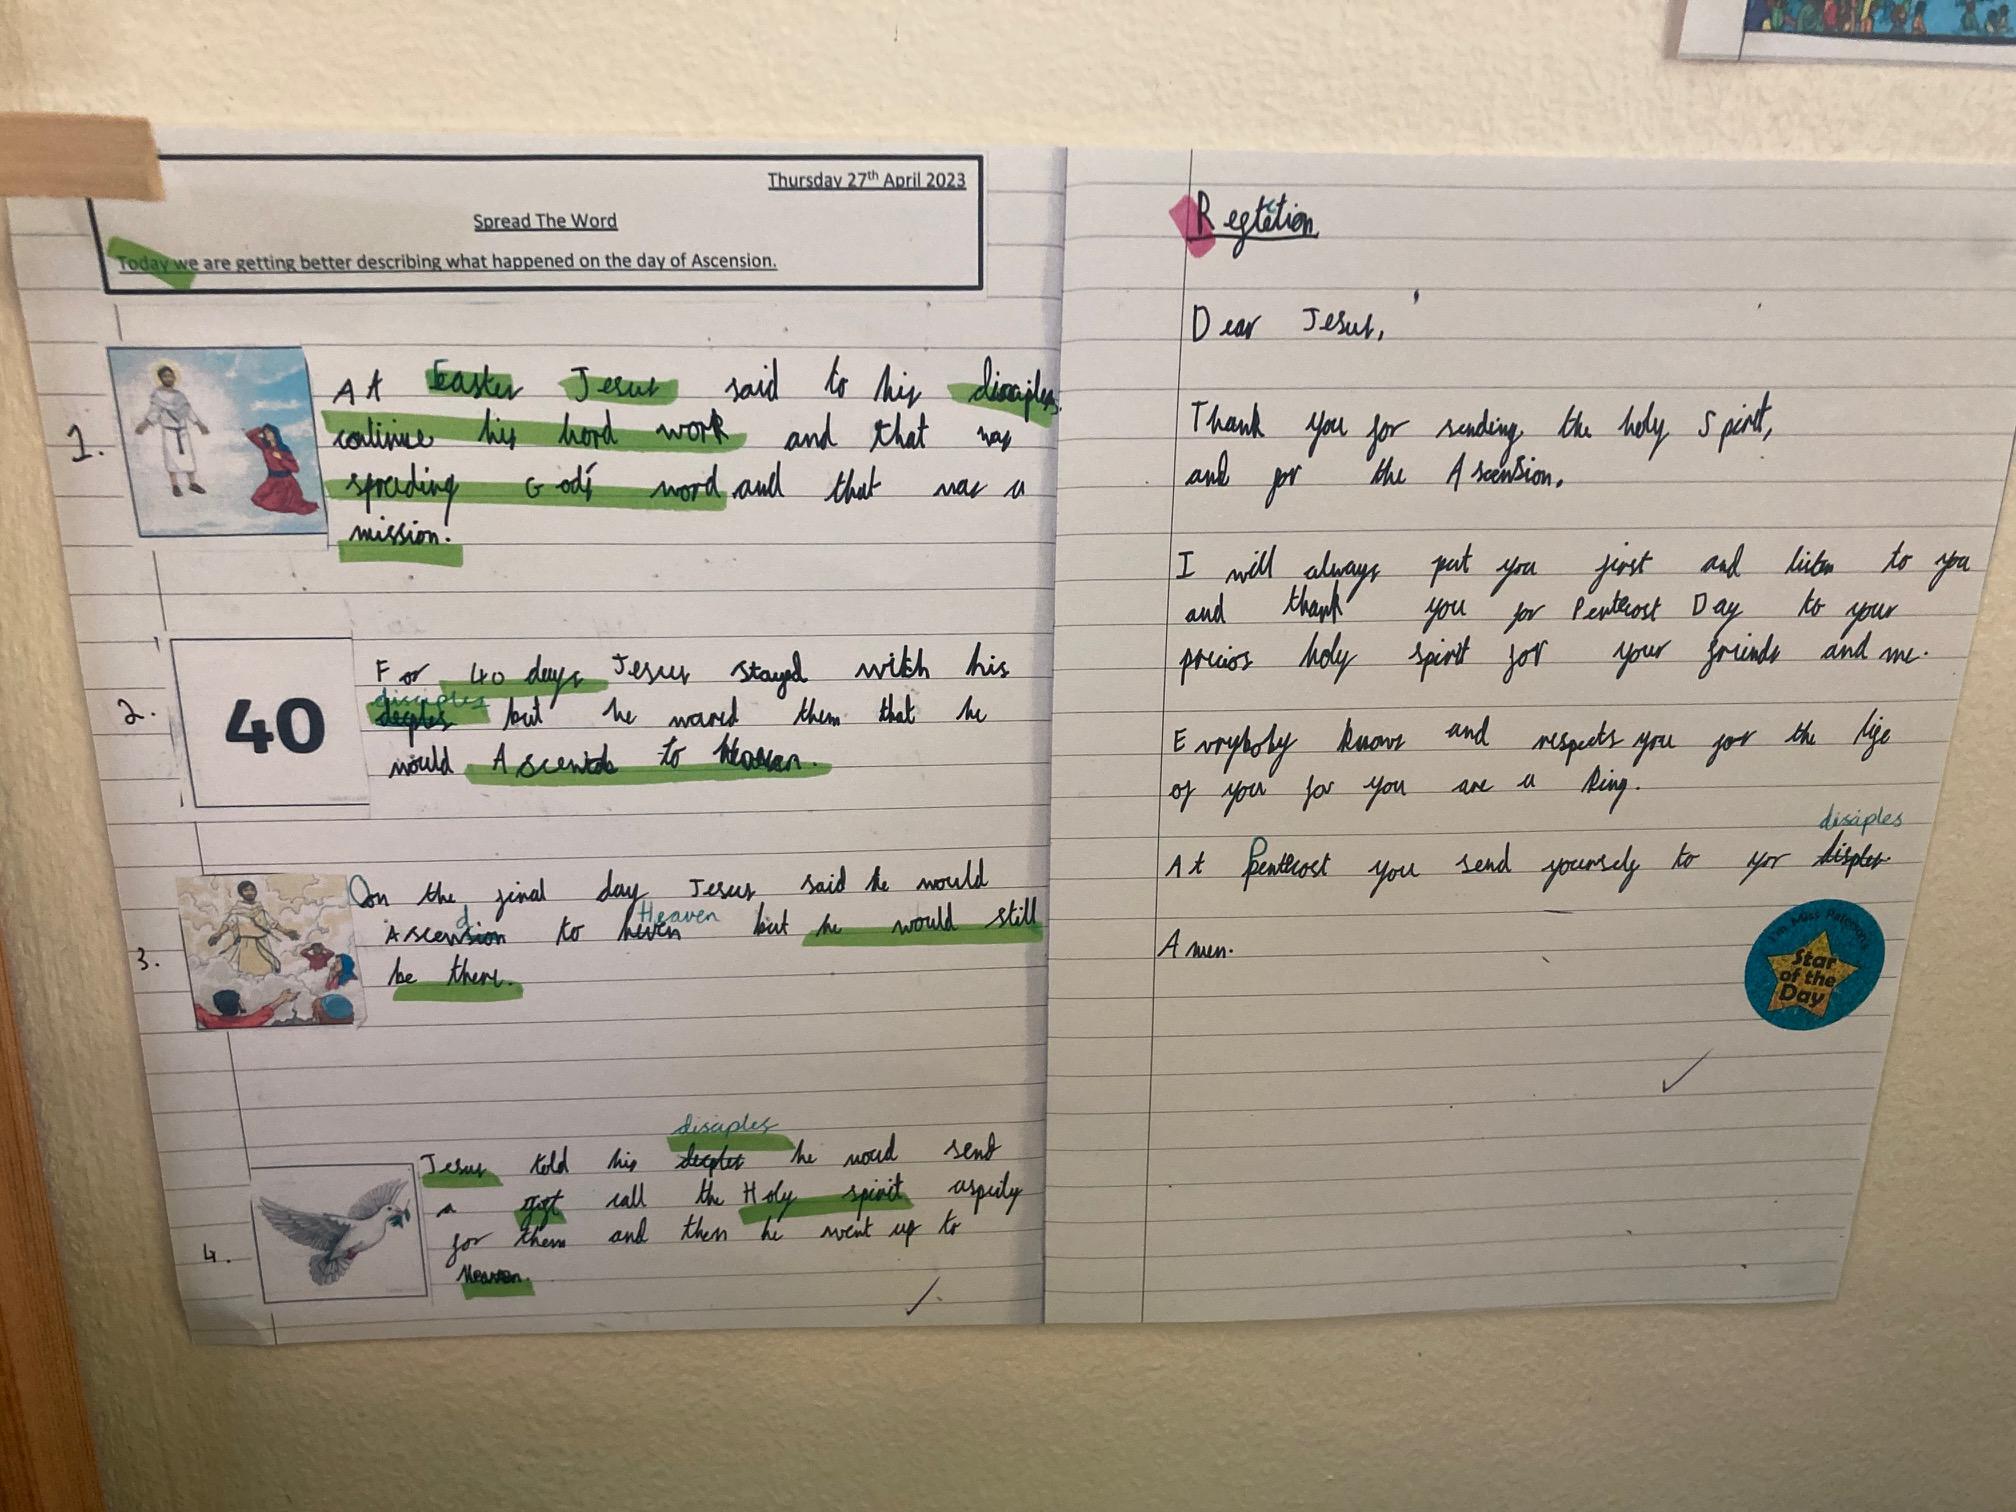 Thursday 27th April 2023
Spread The Word
Today we are getting better describing what happened on the day of Ascension.
1.
At Easter Jesus said to his disciples
continue his hord work and that was
spreading God's word and that was a
mission.
2.
40
For 40 days Jesus stayed with his
disciples
deciples but he wared them that he
would Ascend to Heaven.
3.
On the final day Jesus said he would
d Heaven
Ascension to heven but he would still
be there.
disciples
4.
Jesus told his deciples he woud send
a gift call the Holy spirit
for them and then he went up to
Heaven.
Dear Jesus,
Thank you for sending the holy Spirit,
and for the Ascension.
I will always put you first and listen to you
and thank you for Pentecost Day to your
precios holy spirit for your friends and me.
Evryboby knows and respects you for the life
of you for you are a King.
disciples
At Pentecost you send yourself to yor
Amen.
I'm Miss Paterson's
Star
of the
Day